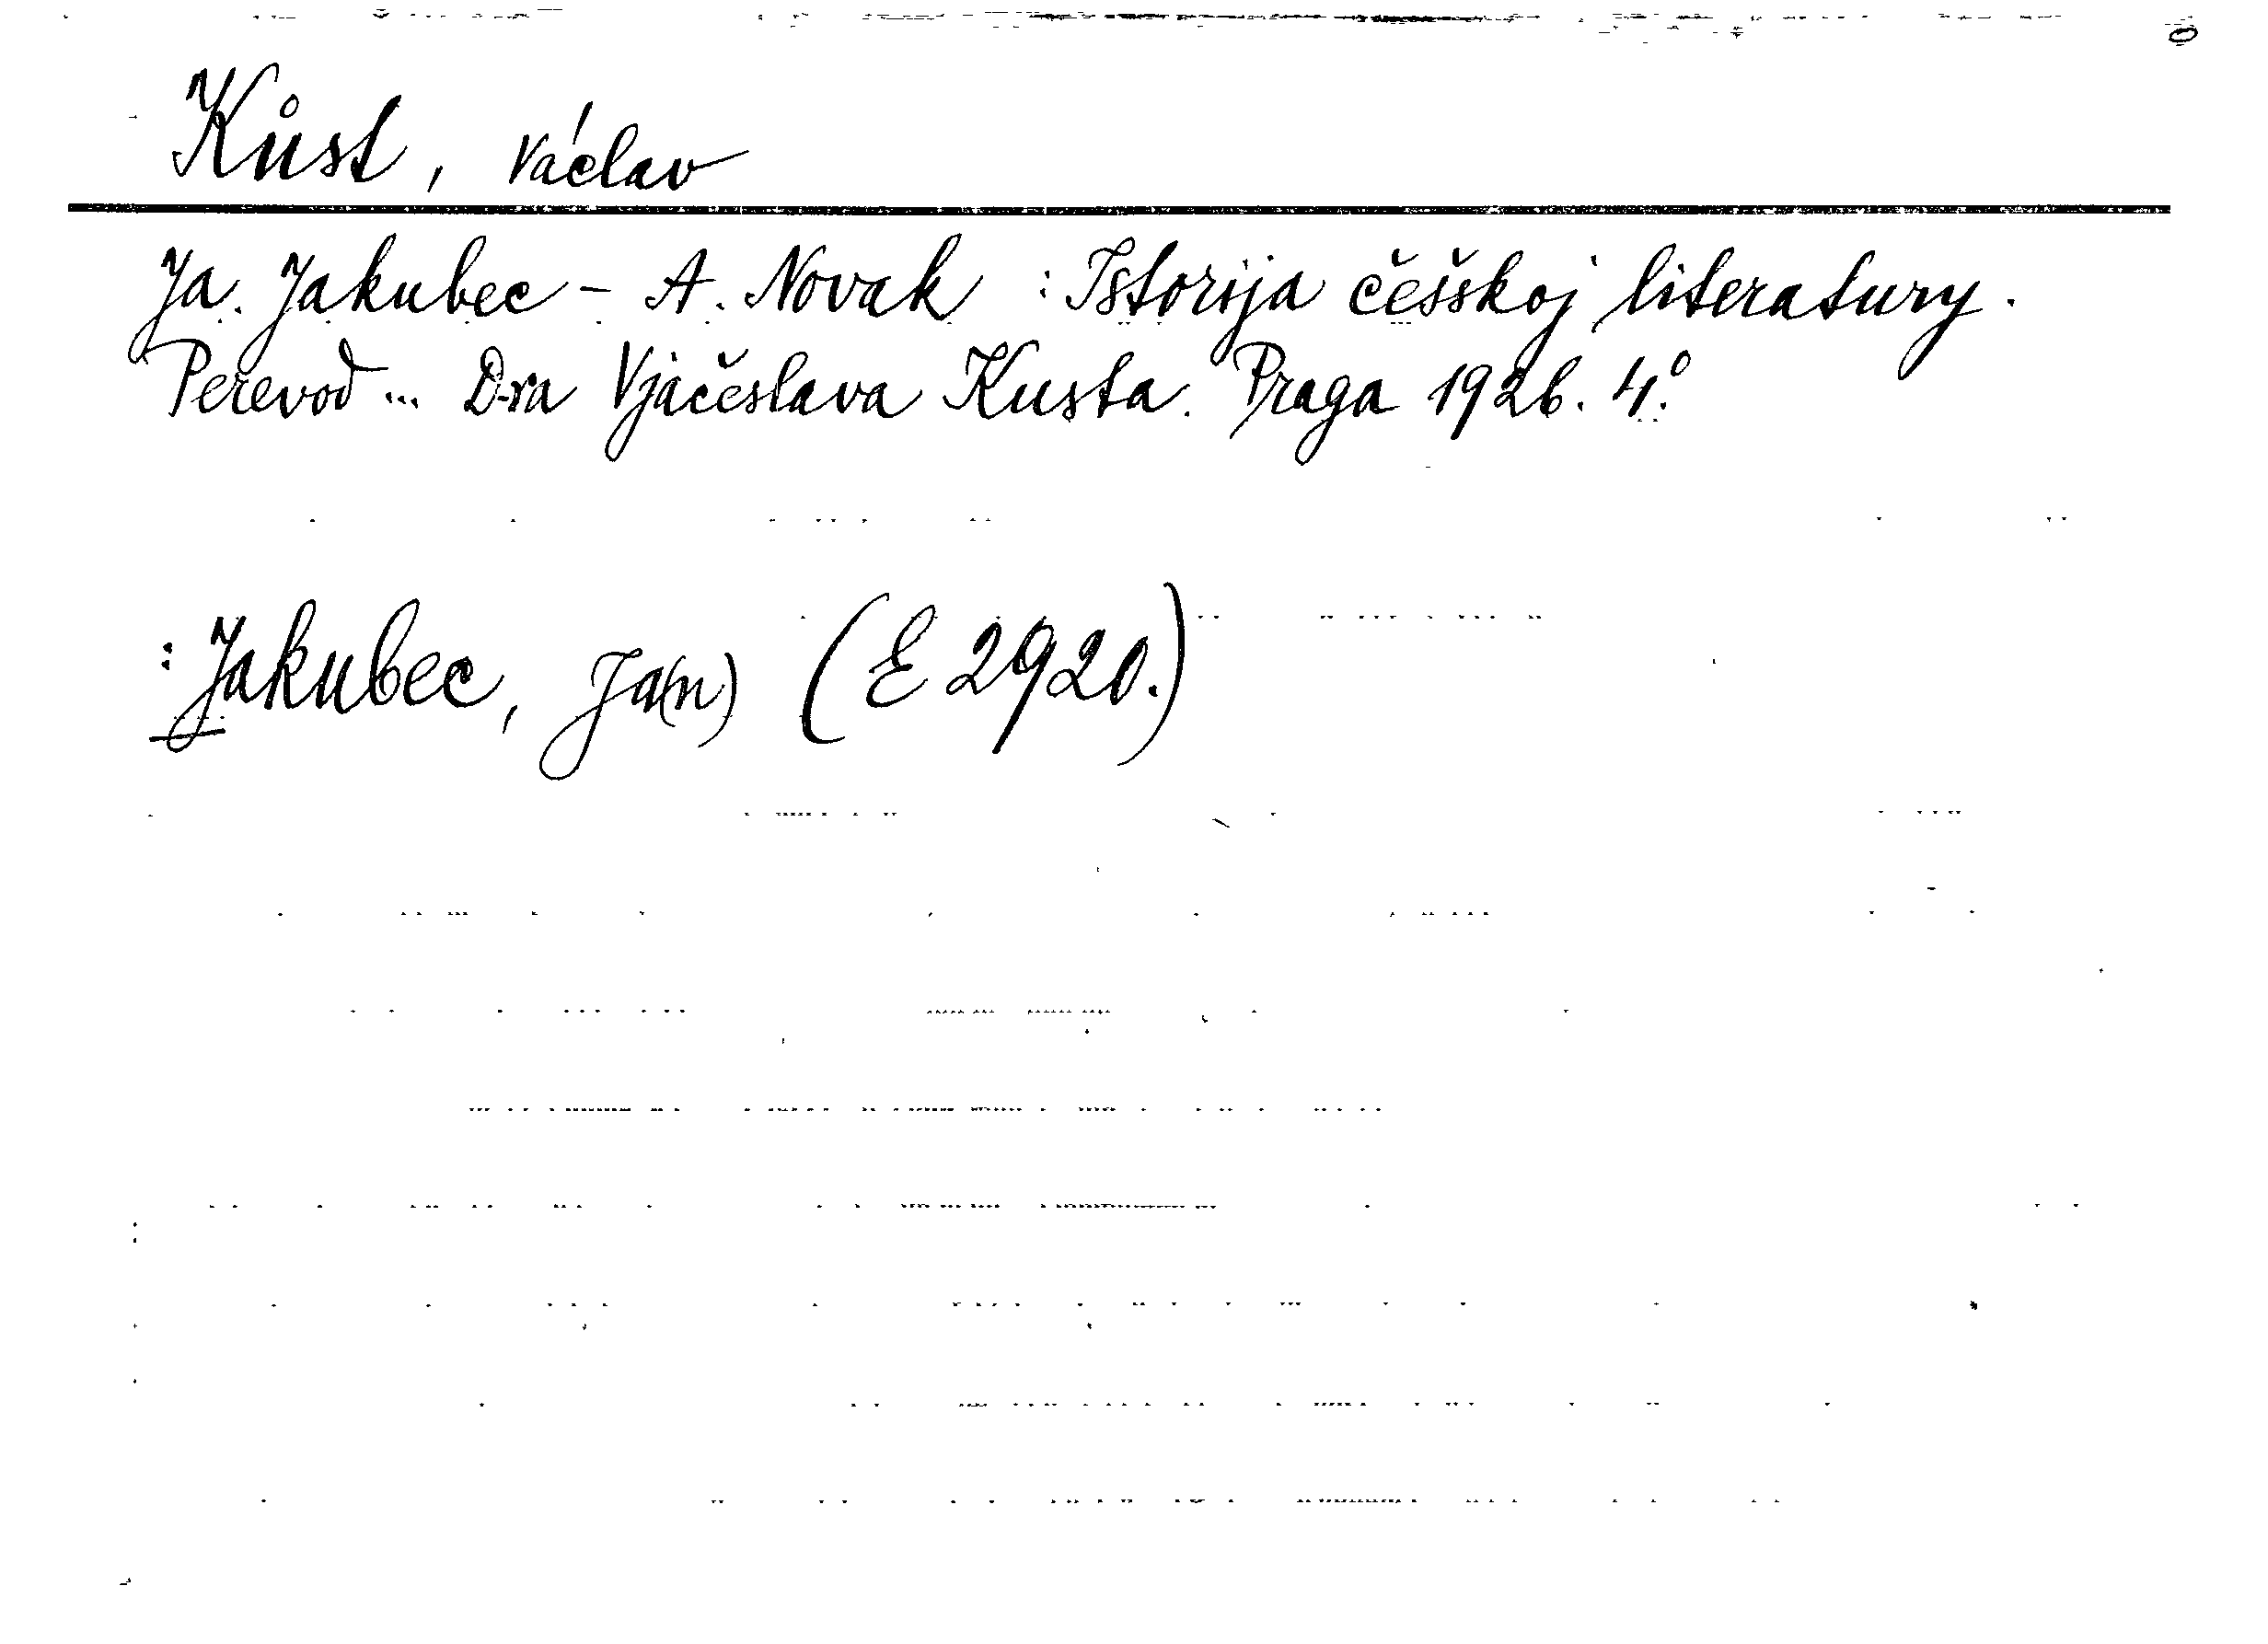 Kůst, Václav
Ja. Jakubec - A. Novak : Istorija češskoj literatury.
Perevod ... D-ra Vjačeslava Kusta. Praga 1926. 4.°
: Jakubec, Ja(n) (E 2920.)